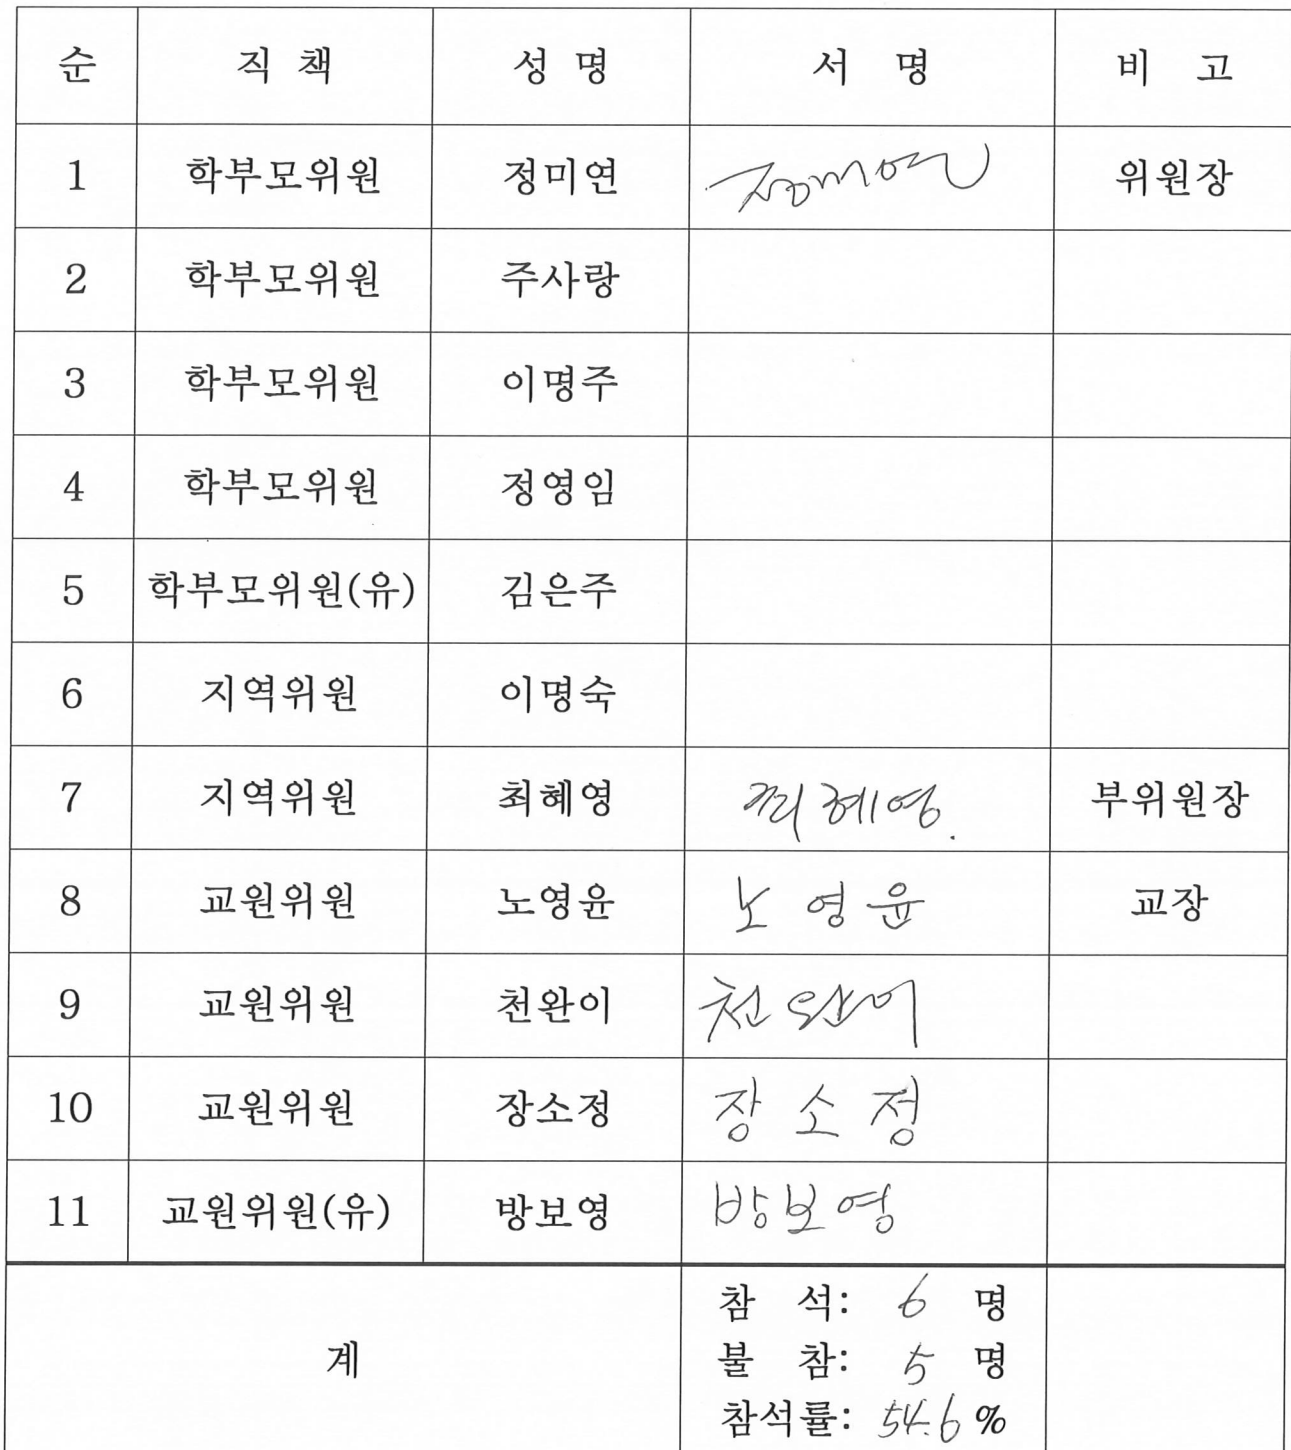 순 직 책 성 명 서 명 비 고
1 학부모위원 정미연 정미연 위원장
2 학부모위원 주사랑
3 학부모위원 이명주
4 학부모위원 정영임
5 학부모위원(유) 김은주
6 지역위원 이명숙
7 지역위원 최혜영 최혜영. 부위원장
8 교원위원 노영윤 노영윤 교장
9 교원위원 천완이 천완이
10 교원위원 장소정 장소정
11 교원위원(유) 방보영 방보영
계 참 석: 6 명
불 참: 5 명
참석률: 54.6 %